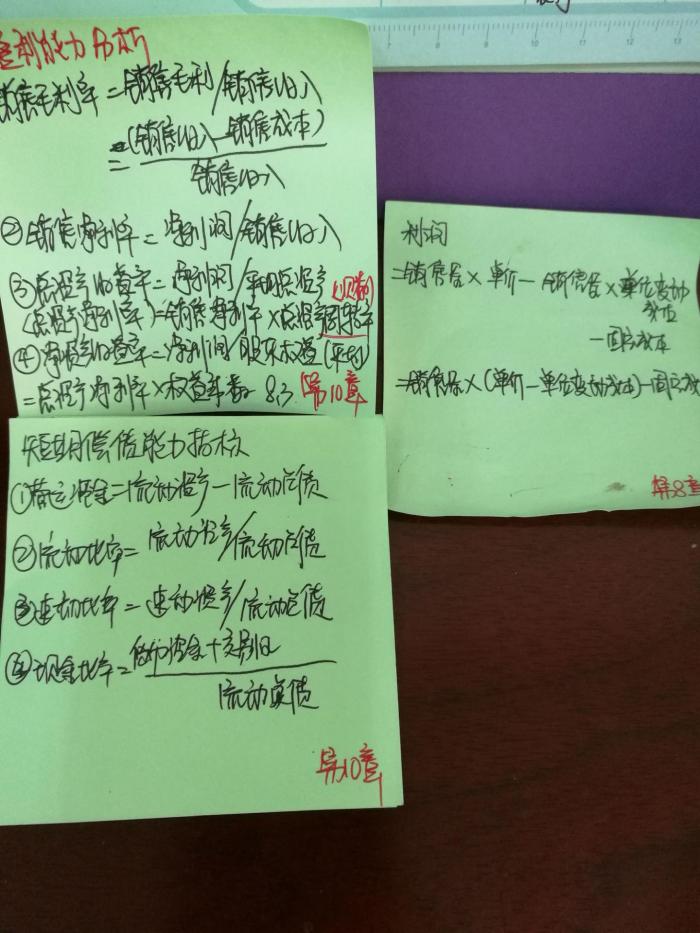 盈利能力分析
销售毛利率=销售毛利/销售收入
=(销售收入-销售成本)
销售收入
②销售净利率=净利润/销售收入
③总资产收益率=净利润/平均总资产
(总资产净利率)=销售净利率×总资产周转率
④净资产收益率=净利润/股东权益(平均)
=总资产净利率×权益乘数 8.3 第10章
短期偿债能力指标
①营运资金=流动资产-流动负债
②流动比率=流动资产/流动负债
③速动比率=速动资产/流动负债
④现金比率=货币资金+交易性
流动负债
第10章
利润
=销售量×单价-销售量×单位变动
成本
-固定成本
=销售量×(单价-单位变动成本)-固定成
第8章
7 8 9 10 11 12 13